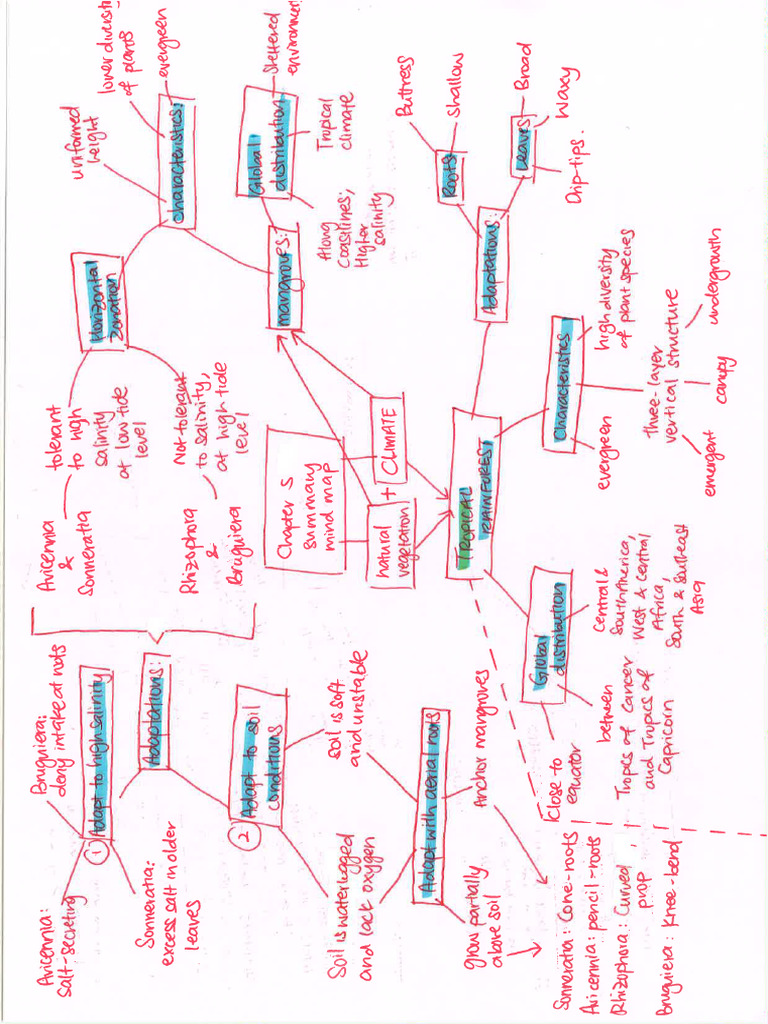 Avicennia:
salt-secreting
Bruguiera:
deny intake at roots
① Adapt to high salinity
Sonneratia:
excess salt in older
leaves
Adaptations:
② Adapt to soil
conditions
Soil is waterlogged
and lack oxygen
soil is soft
and unstable
Adapt with aerial roots
grow partially
above soil
Anchor mangroves
Sonneratia: Cone-roots
Avicennia: pencil-roots
Rhizophora: Curved
prop
Bruguiera: Knee-bend
Avicennia
&
Sonneratia
Rhizophora
&
Bruguiera
tolerant
to high
salinity
at low tide
level
Not tolerant
to salinity,
at high tide
level
Horizontal
zonation
characteristics:
uniformed
height
lower diversity
of plants
evergreen
mangroves:
Global
distribution
sheltered
environment
Tropical
climate
Along
Coastlines;
Higher
salinity
Chapter 5
summary
mind map
natural
vegetation
+
CLIMATE
TROPICAL
RAINFOREST
Adaptations:
Roots
Buttress
shallow
Leaves
Broad
Waxy
Drip-tips.
Characteristics
evergreen
high diversity
of plant species
three-layer
vertical structure
emergent
canopy
undergrowth
Global
distribution
close to
equator
between
Tropics of Cancer
and Tropics of
Capricorn
Central &
South America,
West & Central
Africa,
South & Southeast
Asia